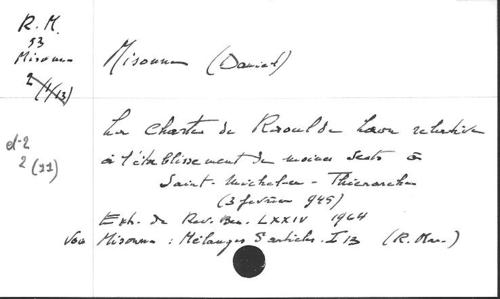 R. M.
53
Misonne
2 (1/13)
Misonne (Daniel)
el-2
2 (11)
La Charte de Raoul de Laon relative
à l'établissement de moines scots à
Saint-Michel-en-Thiérache
(3 février 945)
Extr. de Rev. Ben. LXXIV 1964
Voir Misonne : Mélanges 5 articles. I 13 (R. Mar.)